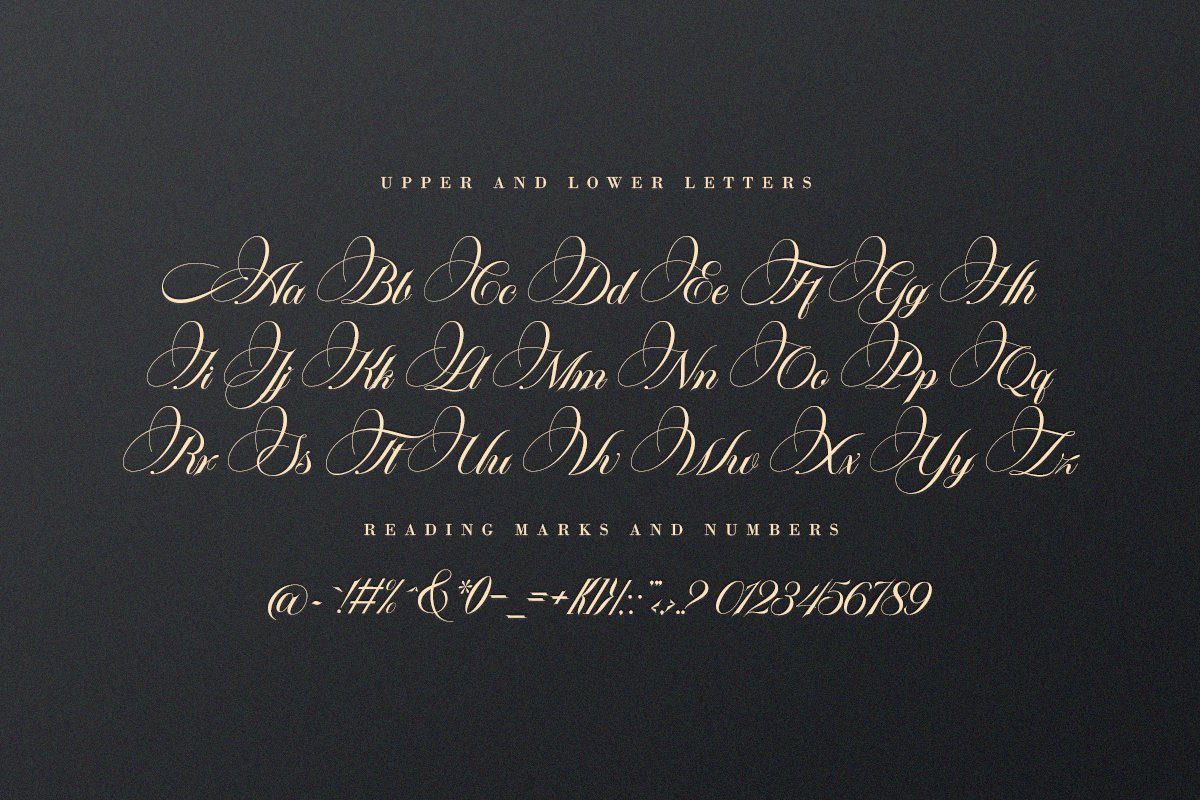 UPPER AND LOWER LETTERS
Aa Bb Cc Dd Ee Ff Gg Hh
Ii Jj Kk Ll Mm Nn Oo Pp Qq
Rr Ss Tt Uu Vv Ww Xx Yy Zz
READING MARKS AND NUMBERS
@ - `!#% ^&*()-_=+ 0123456789